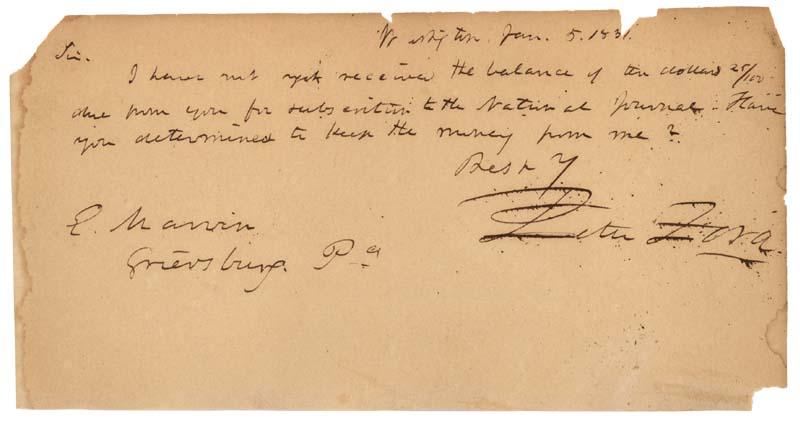 Washington. Jan. 5. 183
Sir.
I have not yet received the balance of ten dollars 25/100
due from you for subscription to the National Journal. Have
you determined to keep the money from me?
Resp Y
Peter Force
E. Marvin
Griersburg. Pa